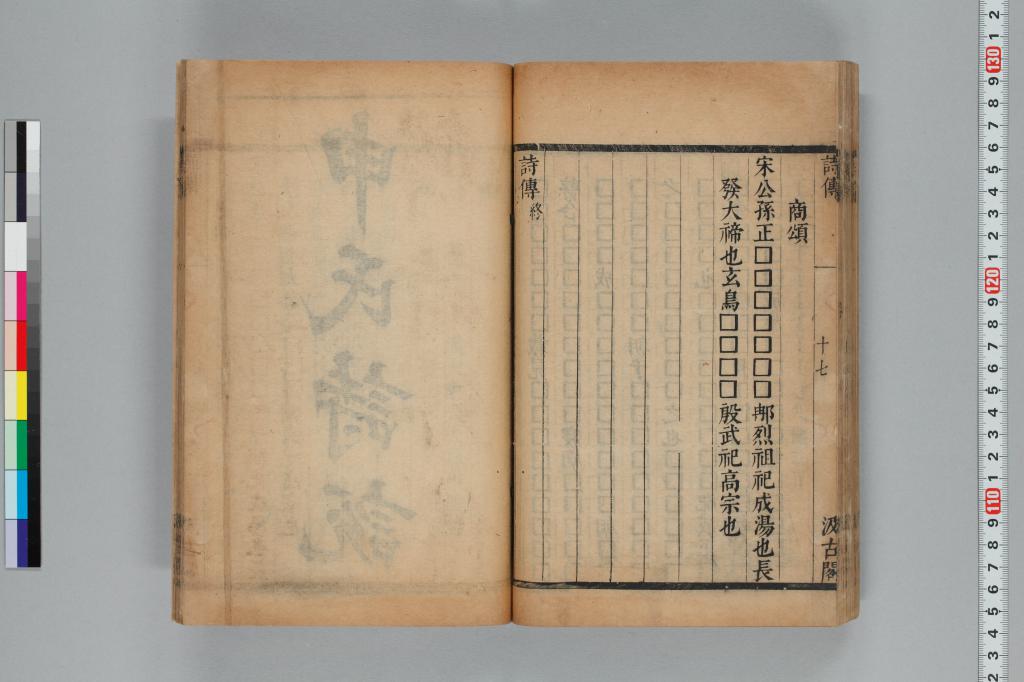 詩傳
十七
汲古閣
商頌
宋公孫正□□□□□□□那烈祖祀成湯也長
發大禘也玄鳥□□□□殷武祀高宗也
詩傳終
申氏詩說
130
120
110